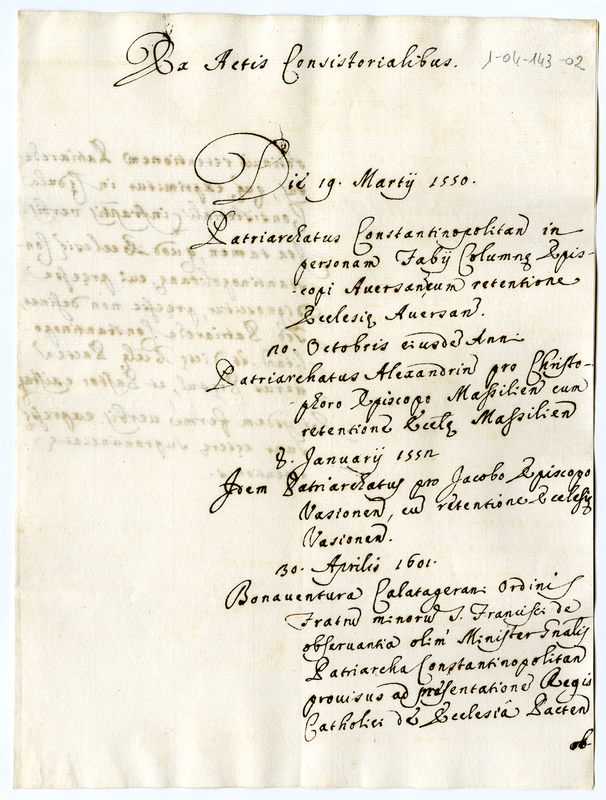 Ex Actis Consistorialibus.
1-04-143-02
Die 19. Martij 1550.
Patriarchatus Constantinopolitan in
personam Fabij Columnę Epis-
copi Aversan cum retentione
Ecclesię Aversan.
20. Octobris eiusdē Anni
Patriarchatus Alexandrin pro Christo-
phoro Episcopo Massilien cum
retentione Eccłę Massilien
8. Januarij 1552
Idem Patriarchatus pro Jacobo Episcopo
Vasionen, cū retentione Ecclesię
Vasionen.
30. Aprilis 1601.
Bonaventura Calatageran. Ordinis
Fratrū minorū S. Francisci de
observantia olim Minister Gnałis
Patriarcha Constantinopolitan
provisus ad presentationē Regis
Catholici de Ecclesiâ Pacten
ob-